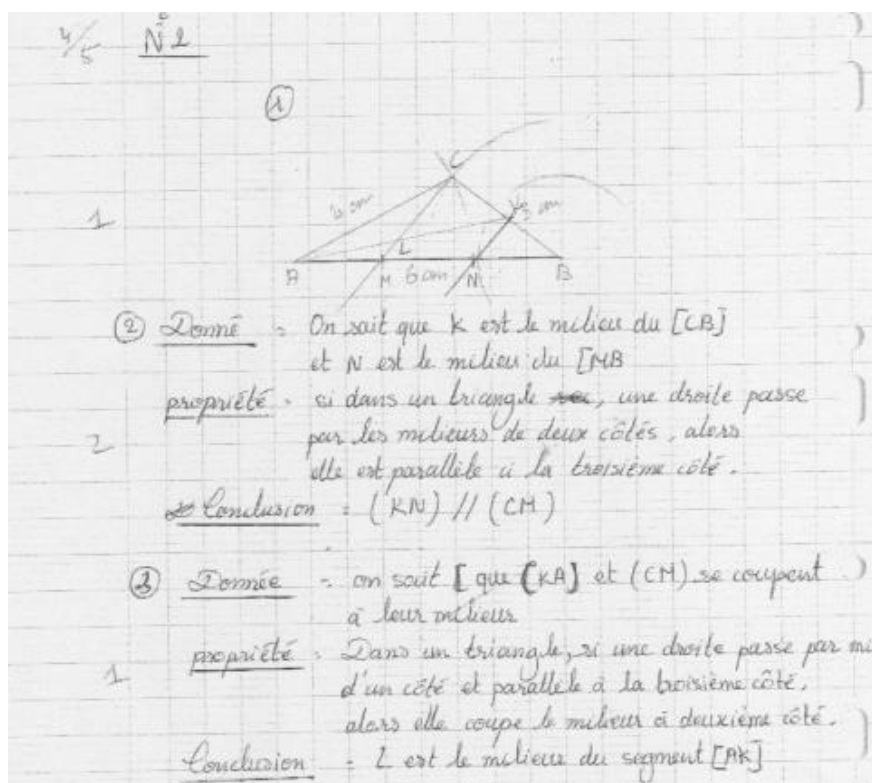 4/5 N°2
①
C
4 cm
K
3 cm
1
L
A M 6 cm N B
② Donné = On sait que K est le milieu du [CB]
et N est le milieu du [MB
propriété = si dans un triangle, une droite passe
par les milieurs de deux côtés, alors
2
elle est parallèle à la troisième côté.
Conclusion = (KN) // (CM)
③ Donnée = on sait [que [KA] et (CM) se coupent
à leur milieur
propriété = Dans un triangle, si une droite passe par mi
1
d'un côté et parallèle à la troisième côté,
alors elle coupe le milieur à deuxième côté.
Conclusion = L est le milieu du segment [AK]